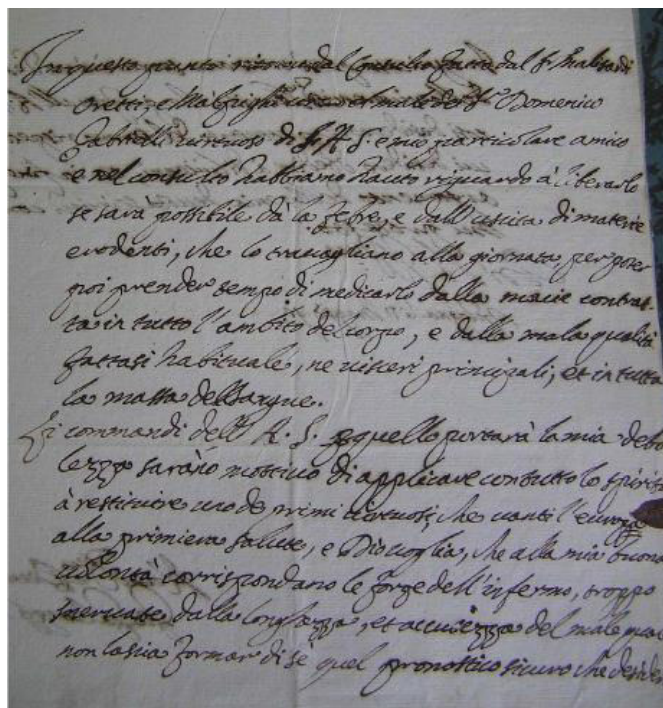 In questo punto ritorno dal Consulto fatto dal Sr.
Oretti, e Malpighi il male del Sr. Domenico
Gabrielli virtuoso di S. A. S. e mio particolare amico
e nel consulto habbiamo hauto riguardo à liberarlo
se sarà possibile dà la febre, e dall'uscita di materie
erodenti, che lo travagliano alla giornata, per poter
poi prender tempo di medicarlo dalla macie contrat-
ta in tutto l'ambito del corpo, e dalla mala qualità
fattasi habituale, ne visceri principali, et in tutta
la massa del sangue.
Li commandi dell' A. S. quello portarà la mia debo
lezza sarano mottivo di applicare con tutto lo spirito
à restituire uno de primi virtuosi, che vanti l'europa
alla primiera salute, e Dio voglia, che alla mia buona
volontà corrispondano le forze dell'infermo, troppo
snervate dalla longhezza, et accutezza del male
non lascia formar di sè quel pronostico sicuro che